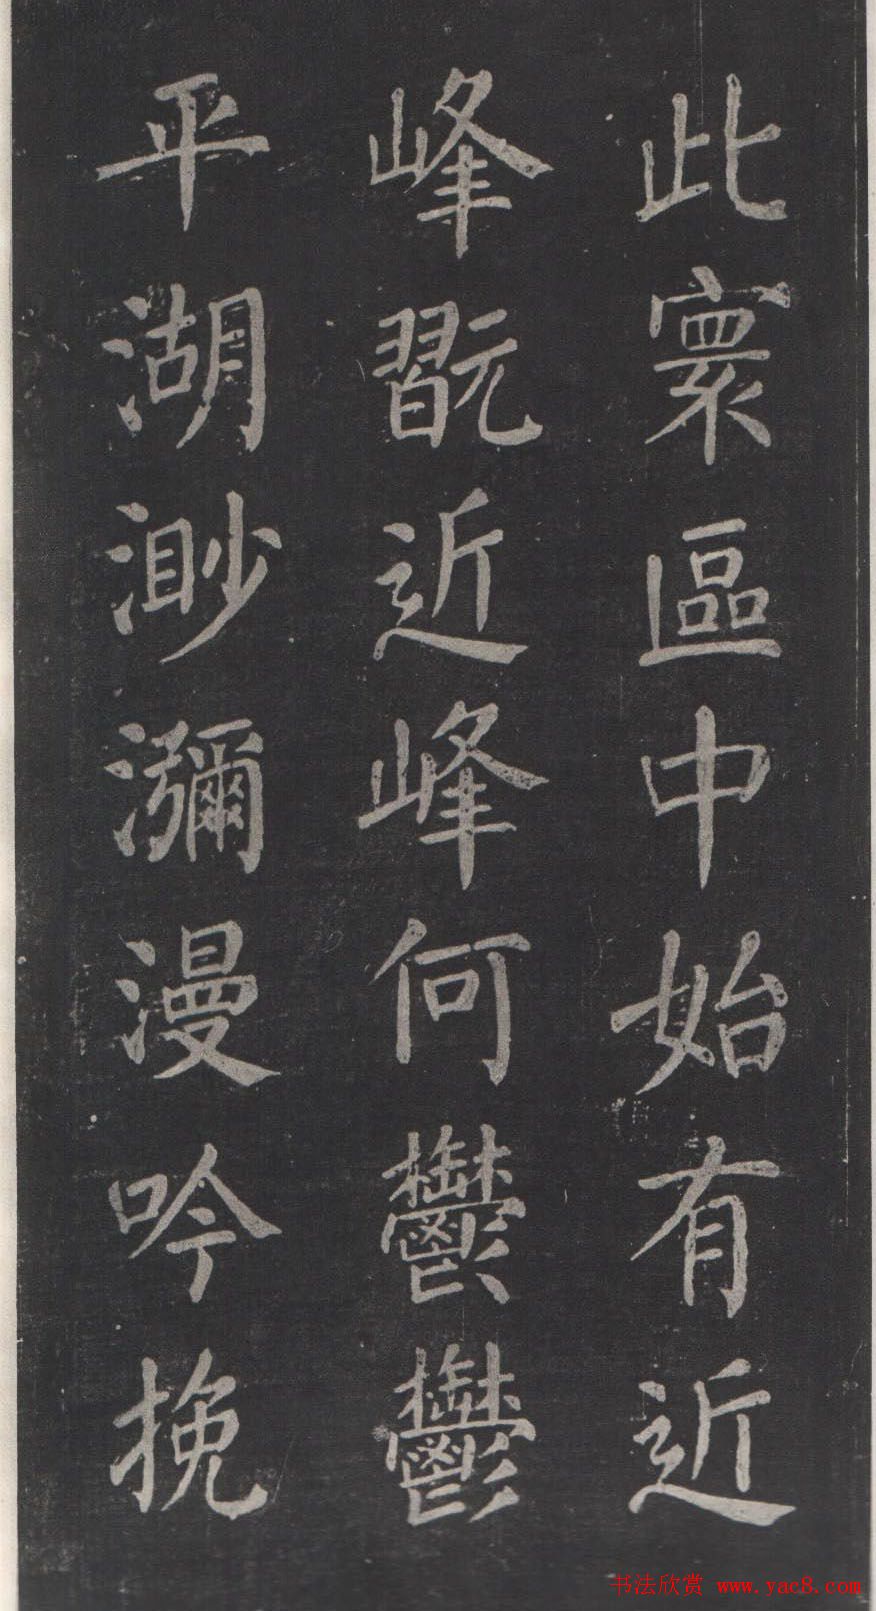 此寰區中始有近
峰翫近峰何鬱鬱
平湖渺瀰漫吟挽
书法欣赏 www.yac8.com